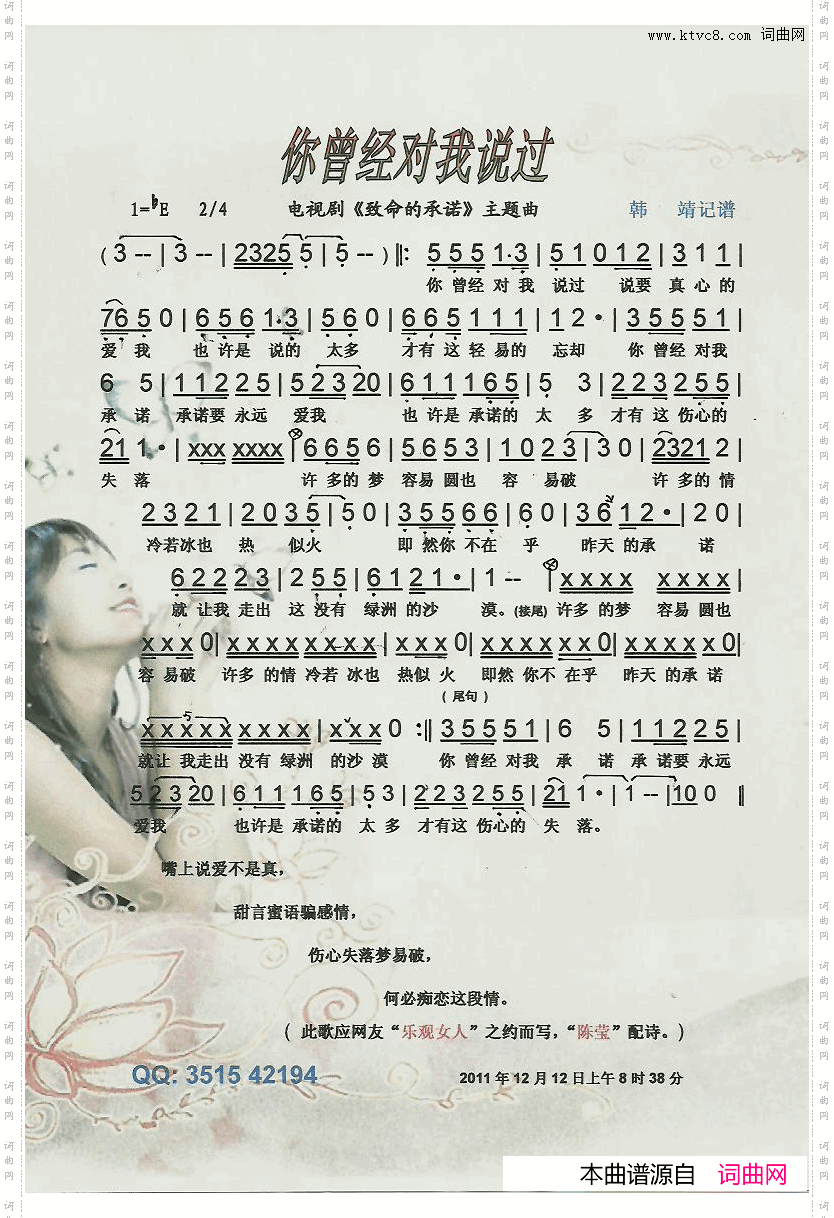 www.ktvc8.com 词曲网
你曾经对我说过
1=♭E 2/4 电视剧《致命的承诺》主题曲 韩 靖记谱
( 3 -- | 3 -- | 2325 5 | 5 -- ) ‖: 5 5 5 1·3 | 5 1 0 1 2 | 3 1 1 |
你 曾经 对 我 说过 说要 真 心 的
76 5 0 | 6 5 6 1·3 | 5 6 0 | 6 6 5 1 1 1 | 1 2 · | 3 5 5 5 1 |
爱 我 也 许是 说的 太多 才有 这 轻 易的 忘却 你 曾经 对我
6 5 | 1 1 2 2 5 | 5 2 3 20 | 6 1 1 1 6 5 | 5 3 | 2 2 3 2 5 5 |
承 诺 承诺要 永远 爱我 也 许是 承诺的 太 多 才有 这 伤心的
21 1 · | xxx xxxx | 6 6 5 6 | 5 6 5 3 | 1 0 2 3 | 3 0 | 2321 2 |
失 落 许 多的 梦 容易 圆也 容 易破 许多的 情
2 3 2 1 | 2 0 3 5 | 5 0 | 3 5 5 6 6 | 6 0 | 3 6 1 2 · | 2 0 |
冷若冰也 热 似火 即 然你 不在 乎 昨天 的承 诺
6 2 2 2 3 | 2 5 5 | 6 1 2 1 · | 1 -- x x x x x x x x |
就 让我 走出 这 没有 绿洲 的沙 漠。(接尾) 许多 的梦 容易 圆也
x x x 0 | x x x x x x x x | x x x 0 | x x x x x x 0 | x x x x x 0 |
容 易破 许多 的情 冷若 冰也 热似 火 即然 你不 在乎 昨天 的承 诺
( 尾句 )
5
x x x x x x x x x | x x x 0 :‖ 3 5 5 5 1 | 6 5 | 1 1 2 2 5 |
就让 我走出 没有 绿洲 的沙 漠 你 曾经 对我 承 诺 承 诺要 永远
5 2 3 20 | 6 1 1 1 6 5 | 5 3 | 2 2 3 2 5 5 | 21 1 · | 1 -- | 10 0 ‖
爱我 也许是 承诺的 太 多 才有这 伤心的 失 落。
嘴上说爱不是真，
甜言蜜语骗感情，
伤心失落梦易破，
何必痴恋这段情。
( 此歌应网友“乐观女人”之约而写，“陈莹”配诗。)
QQ: 3515 42194 2011 年 12 月 12 日上午 8 时 38 分
本曲谱源自 词曲网